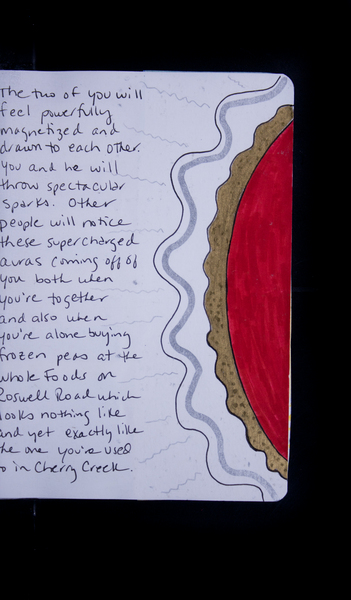 The two of you will
feel powerfully
magnetized and
drawn to each other.
You and he will
throw spectacular
sparks. Other
people will notice
these supercharged
auras coming off of
you both when
you're together
and also when
you're alone buying
frozen peas at the
Whole Foods on
Roswell Road which
looks nothing like
and yet exactly like
the one you're used
to in Cherry Creek.